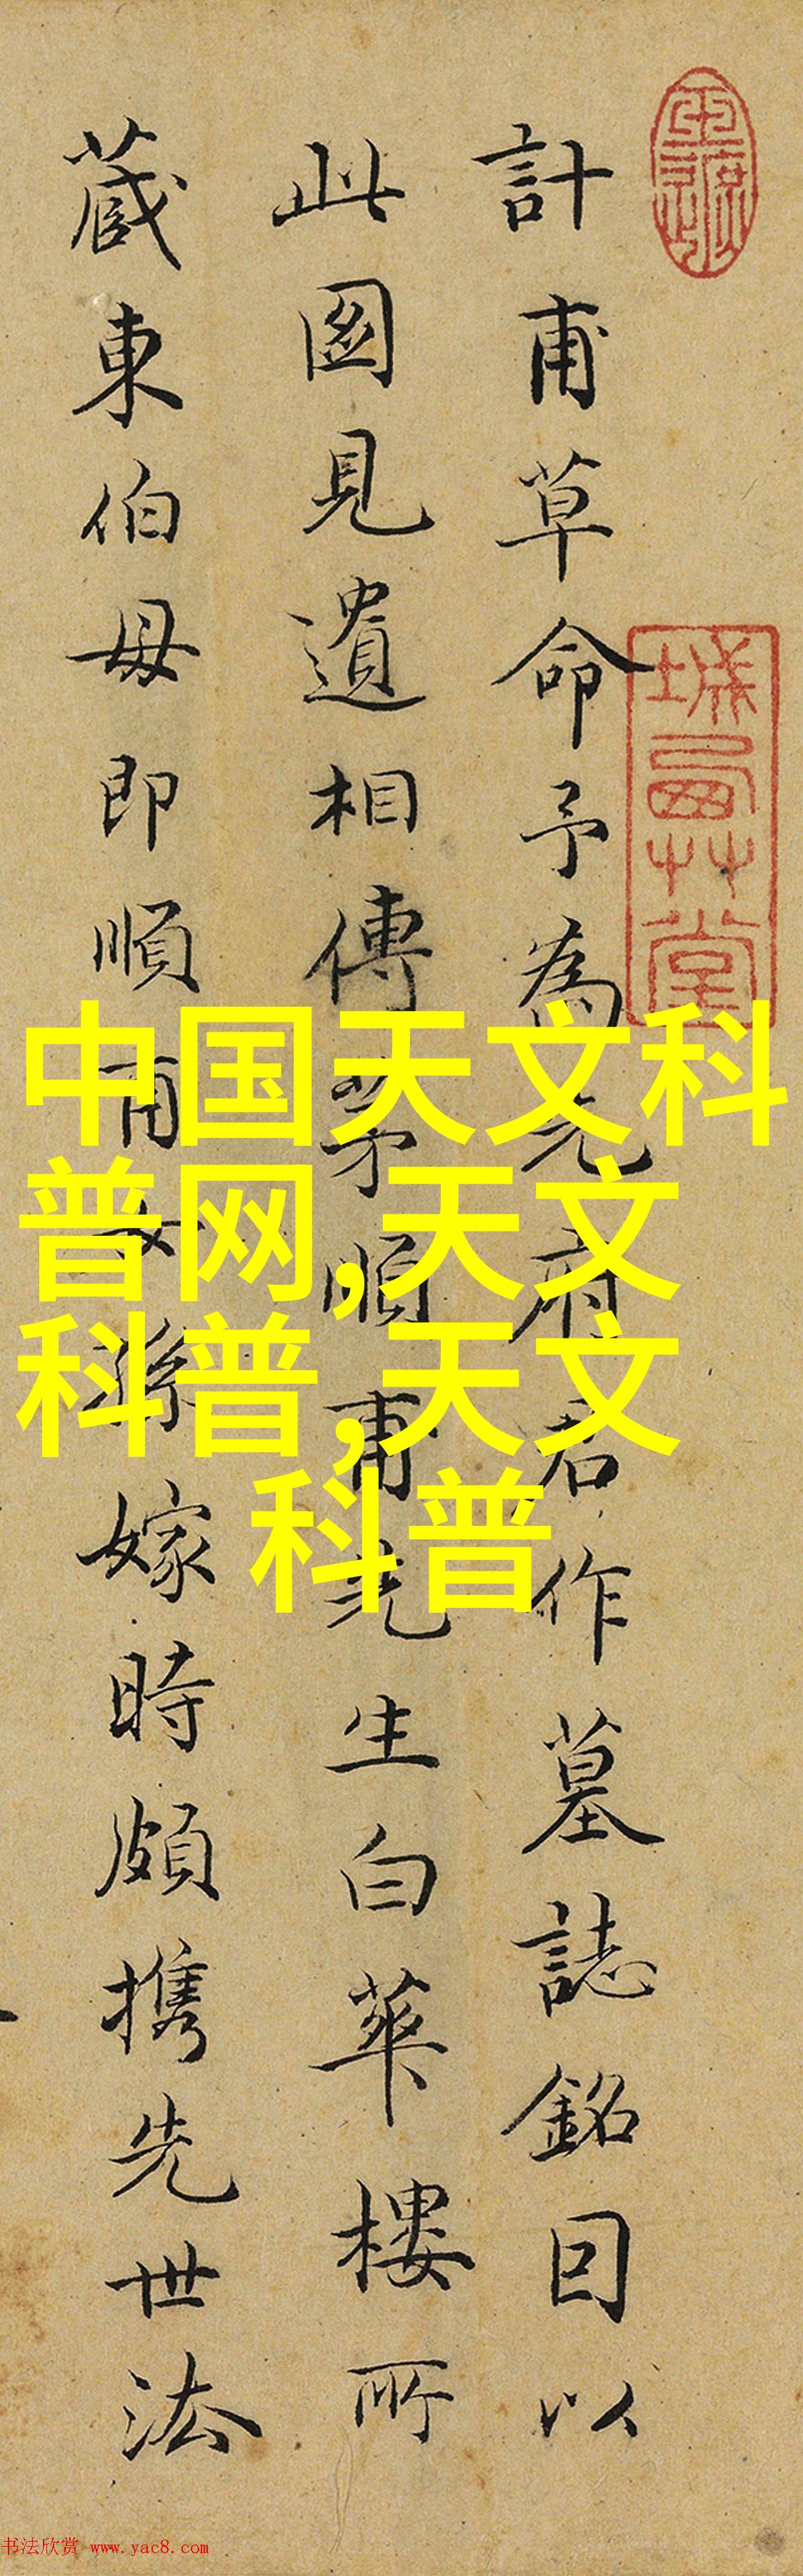 計甫草命予為先府君作墓誌銘曰以
此圖見遺相傳茅順甫先生白華樓所
藏東伯母即順甫女孫嫁時頗携先世法
中国天文科
普网,天文
科普,天文
科普
书法欣赏 www.yac8.com